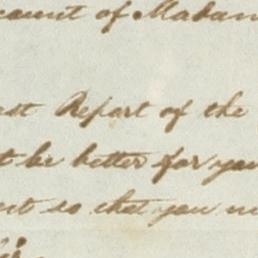 count of Madam
est Report of the
t be better for you
ut so that you